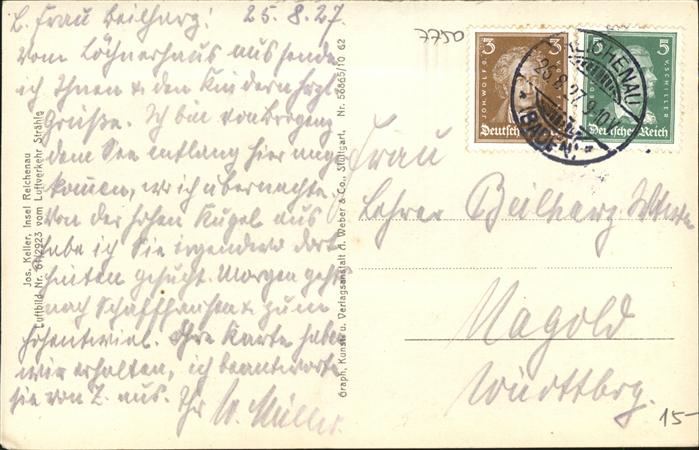 L. Frau Beilharz! 25.8.27.
Vom Löhnerhaus aus sende
ich Ihnen & den Kindern herzl.
Grüße. Ich bin von Bregenz
dem See entlang hier ange
kommen, wo ich übernachte.
Von der hohen Kugel aus
habe ich Sie irgendwo dort
hinten gesucht. Morgen geht's
nach Schaffhausen & zum
Hohentwiel. Ihre Karte haben
wir erhalten, ich beantworte
sie von Z. aus. Ihr W. Müller.
Jos. Keller, Insel Reichenau
Luftbild Nr. 61/2923 vom Luftverkehr Strähle
Graph. Kunst- u. Verlagsanstalt A. Weber & Co., Stuttgart. Nr. 56865/10 62
3 3
JOH. WOLFG.
Deutsches
5 5
V. SCHILLER
Deutsches Reich
REICHENAU
25.8.27. 9-10
* (BADEN) *
Frau
Lehrer Beilharz Wwe
Nagold
Württbrg.
15-